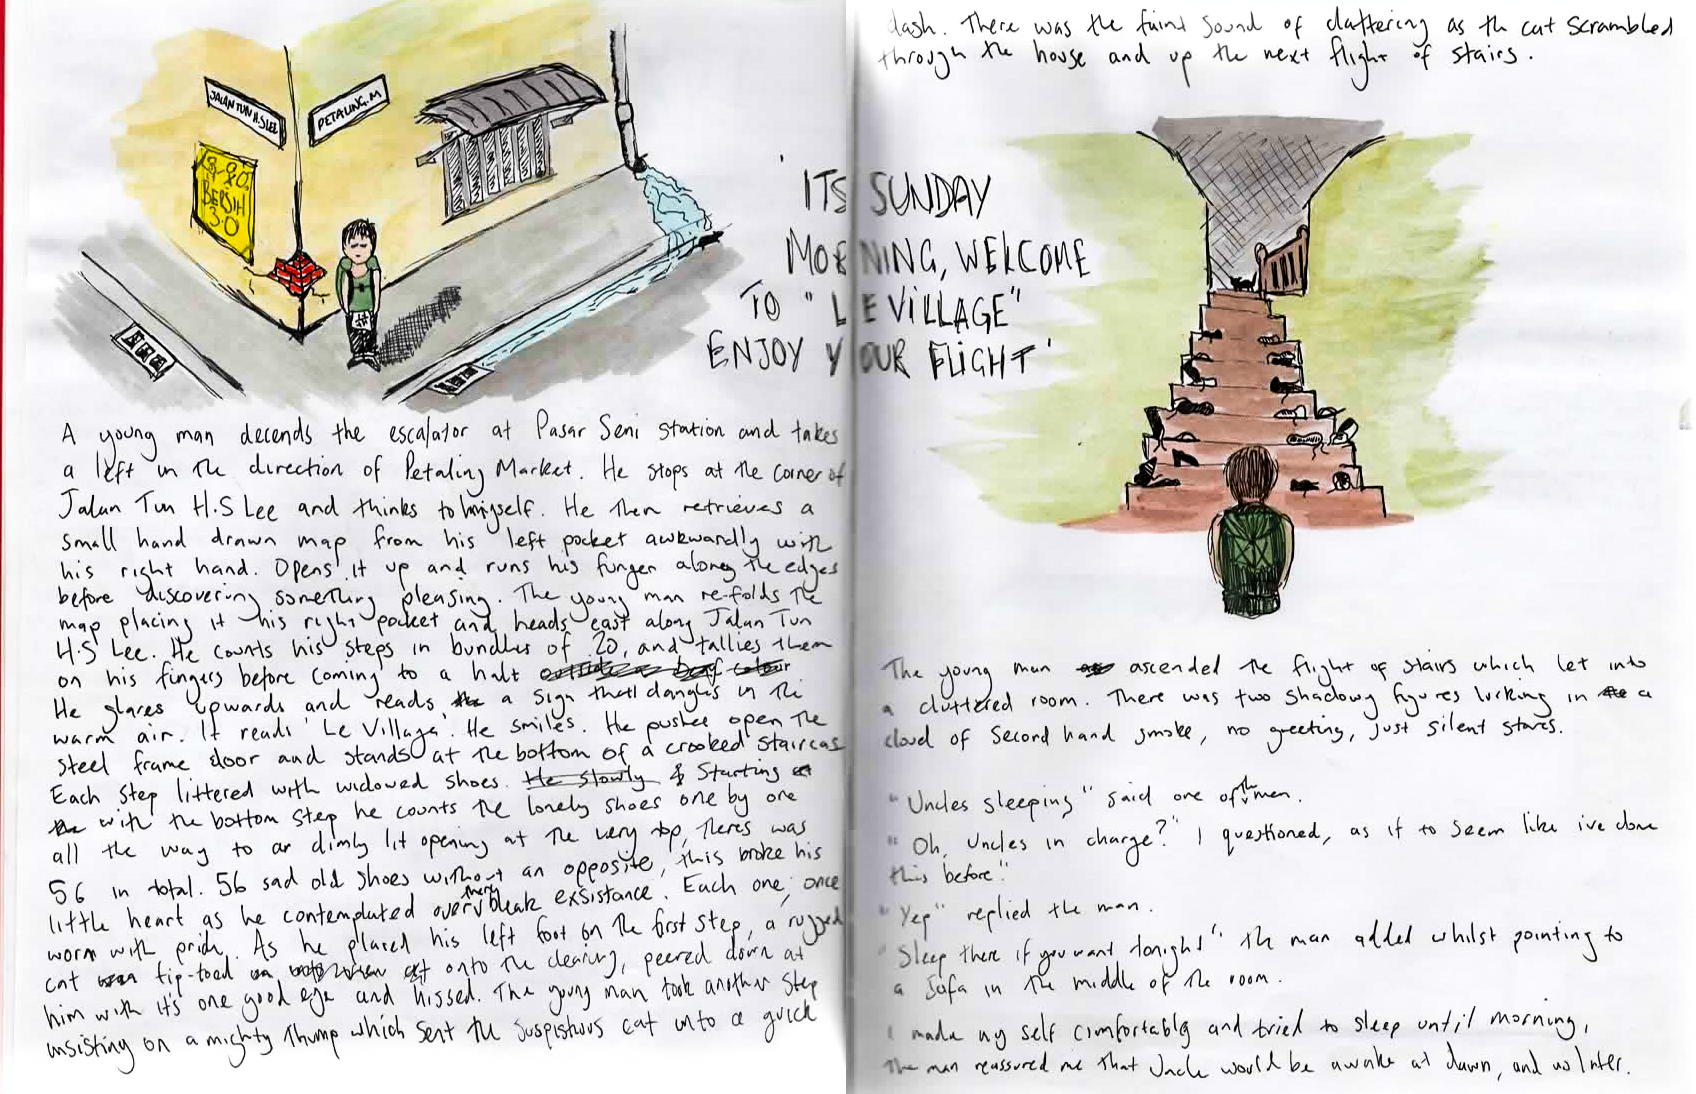 JALAN TUN H.S LEE
PETALING. M
BERSIH
3.0
'ITS SUNDAY
MORNING, WELCOME
TO "LE VILLAGE"
ENJOY YOUR FLIGHT'
A young man decends the escalator at Pasar Seni Station and takes
a left in the direction of Petaling Market. He stops at the corner of
Jalan Tun H.S Lee and thinks to himyself. He then retrieves a
small hand drawn map from his left pocket awkwardly with
his right hand. Opens it up and runs his funger along the edges
before discovering something pleasing. The young man re-folds the
map placing it his right pocket and heads east along Jalan Tun
H.S Lee. He counts his steps in bundles of 20, and tallies them
on his fingers before coming to a halt
He glares upwards and reads a sign that dangles in the
warm air. It reads 'Le Village'. He smiles. He pushes open the
steel frame door and stands at the bottom of a crooked staircas
Each step littered with widowed shoes. He slowly & Starting
with the bottom step he counts the lonely shoes one by one
all the way to a dimly lit opening at the very top, theres was
56 in total. 56 sad old shoes without an opposite, this broke his
little heart as he contemplated over their bleak exsistance. Each one, once
worn with pride. As he placed his left foot on the first step, a rugged
cat tip-toed onto the clearing, peered down at
him with it's one good eye and hissed. The young man took another step
insisting on a mighty thump which sent the suspistious cat into a quick
dash. There was the faint sound of clattering as th cat scrambled
through the house and up the next flight of stairs.
The young man ascended the flight of stairs which let into
a cluttered room. There was two shadowy figures lurking in a
cloud of second hand smoke, no greeting, just silent stares.
"Uncles sleeping" said one of the men.
"Oh, Uncles in charge?" I questioned, as if to seem like ive done
this before."
"Yep" replied the man.
"Sleep there if you want tonight" the man added whilst pointing to
a sofa in the middle of the room.
I made my self comfortably and tried to sleep until morning,
The man reassured me that Uncle would be awake at dawn, and no later.